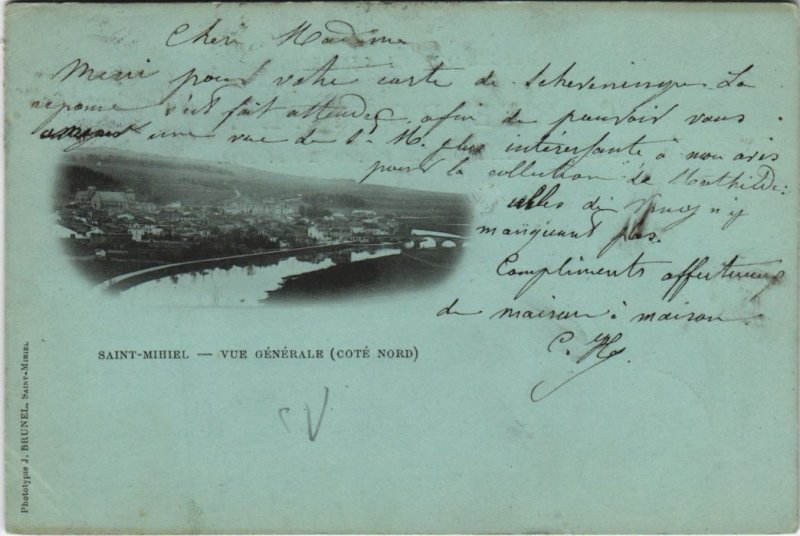 Cher Madame
Merci pour votre carte de Scheveningue. La
réponse s'est fait attendre, afin de pouvoir vous
une vue de St. M. plus intéressante à mon avis
pour la collection de Mathilde:
celles de Nancy n'y
manquent pas.
Compliments affectueux
de maison à maison
C. H.
SAINT-MIHIEL — VUE GÉNÉRALE (COTÉ NORD)
Phototypie J. BRUNEL, SAINT-MIHIEL